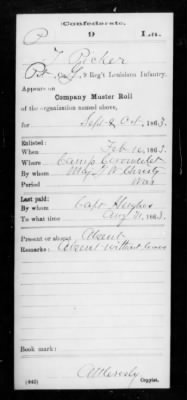 Confederate.
P 9 La.
T. Picher
Pvt, Co. G, 9 Reg't Louisiana Infantry.
Appears on
Company Muster Roll
of the organization named above,
for Sept & Oct, 1863.
Enlisted:
When Feb 10, 1863.
Where Camp
By whom Maj. J. W. Christy
Period War
Last paid:
By whom Capt Hughes
To what time Aug 31, 1863.
Present or absent Absent
Remarks: Absent without leave
Book mark:
(642) Copyist.